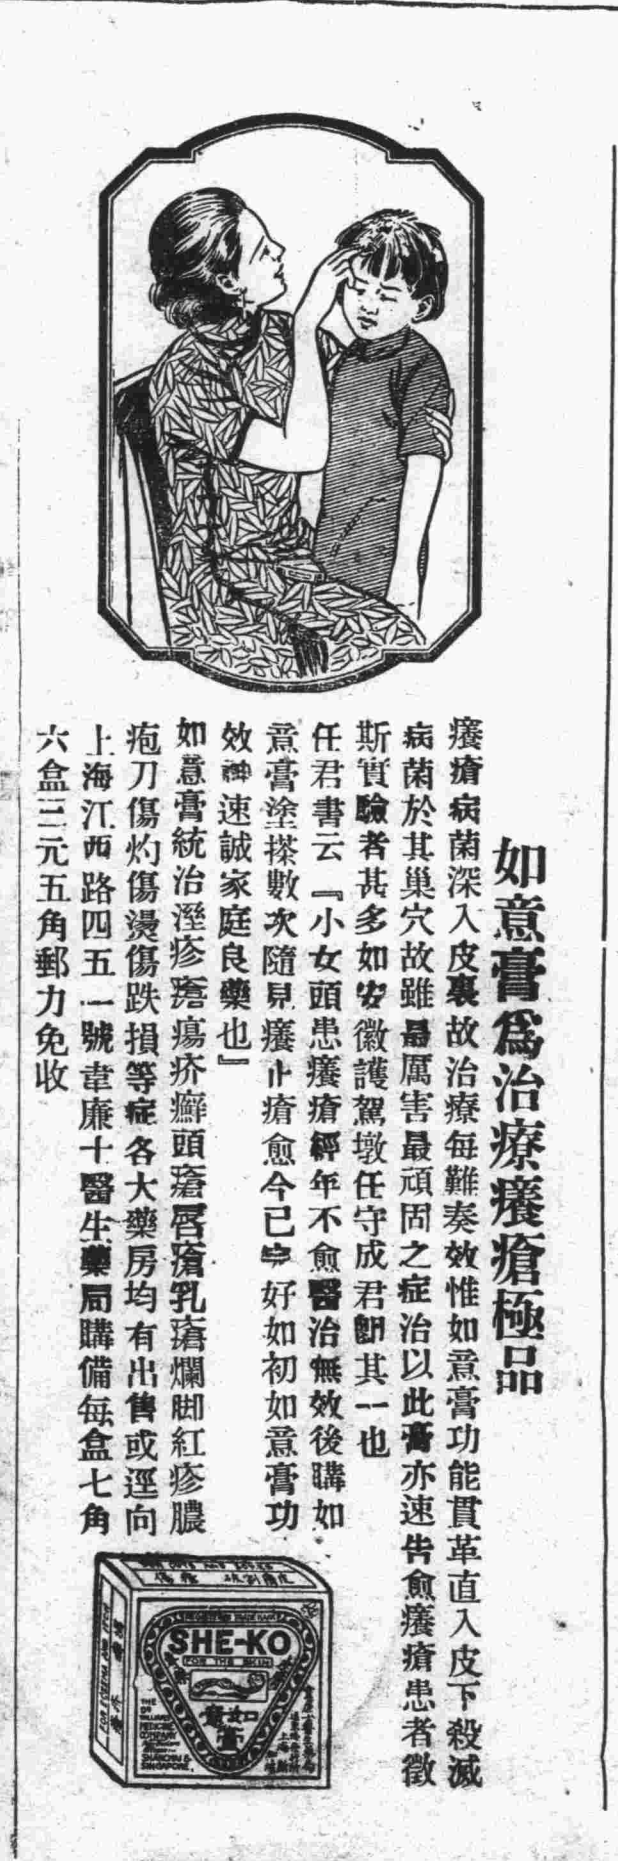 如意膏爲治療癢瘡極品
癢瘡病菌深入皮裏故治療每難奏效惟如意膏功能貫革直入皮下殺滅
病菌於其巢穴故雖最厲害最頑固之症治以此膏亦速告愈癢瘡患者徵
斯實驗者甚多如安徽護駕墩任守成君卽其一也
任君書云『小女頭患癢瘡經年不愈醫治無效後購如
意膏塗搽數次隨見癢止瘡愈今已完好如初如意膏功
效神速誠家庭良藥也』
如意膏統治溼疹瘡瘍疥癬頭瘡唇瘡乳瘡爛脚紅疹膿
疱刀傷灼傷燙傷跌損等症各大藥房均有出售或逕向
上海江西路四五一號韋廉士醫生藥局購備每盒七角
六盒三元五角郵力免收
SHE-KO
FOR THE SKIN
如意膏
THE
DR
WILLIAMS
MEDICINE
COMPANY
SHANGHAI &
SINGAPORE.